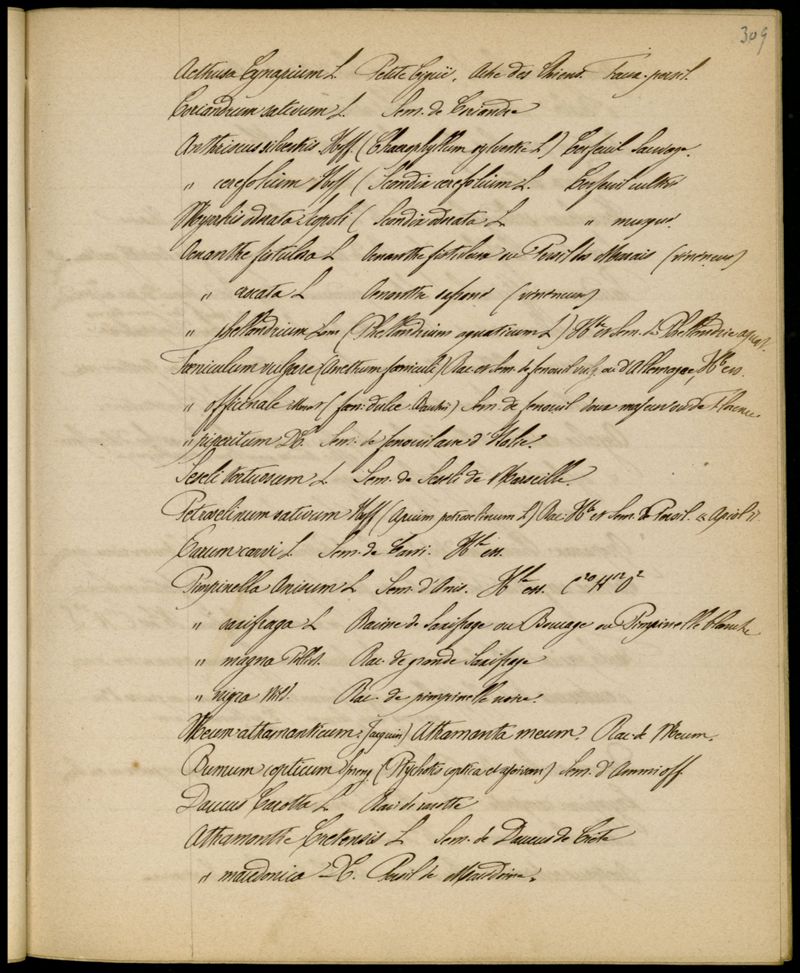 309
Aethusa Cynapium L. Petite Cigüe. Ache des Chiens. Faux persil.
Coriandrum sativum L. Sem. de Coriandre
Anthriscus silvestris Hoff. (Chaerophyllum sylvestre L.) Cerfeuil Sauvage.
" cerefolium Hoff. (Scandix cerefolium L. Cerfeuil cultivé
Myrrhis odorata Scopoli (Scandix odorata L " musqué.
Oenanthe fistulosa L Oenanthe fistuleuse ou Persil des Marais (vénéneux)
" crocata L Oenanthe safrané (vénéneux)
" phellandrium Lam (Phellandrium aquaticum L) Hbe et Sem. de Phellandrie aquat.
Foeniculum vulgare (Anethum foenicul.) Rac et Sem de fenouil vulg. ou d'Allemagne, Hle ess.
" officinale (foen. dulce Bauhin) Sem. de fenouil doux majeur ou de Florence
" piperitum DC. Sem. de fenouil acre d'Italie.
Seseli tortuosum L Sem. de Seseli de Marseille.
Petroselinum sativum Hoff (Apium petroselinum L) Rac. Hbe et Sem. de Persil. & Apiol
Carum carvi L Sem. de Carvi. Hle ess.
Pimpinella Anisum L Sem. d'Anis. Hle ess. C20H12O2
" saxifraga L Racine de Saxifrage ou Boucage ou Pimpinelle blanche
" magna Rac. de grande Saxifrage
" nigra Willd. Rac. de pimpinelle noire.
Meum athamanticum (Jaquin) Athamanta meum. Rac. de Meum.
Bunium copticum Spreng (Ptychotis coptica et ajowan) Sem. d'Ammi off.
Daucus Carotta L Rac. de carotte
Athamanthe Cretensis L Sem. de Daucus de Crète
" macedonica DC. Persil de Macédoine.